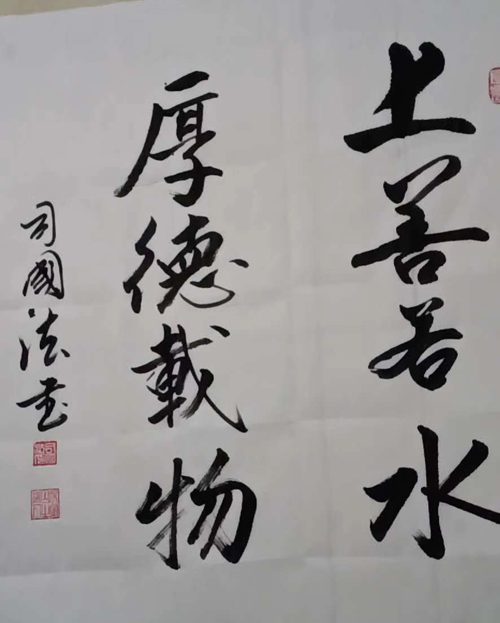 上善若水
厚德載物
司國法書